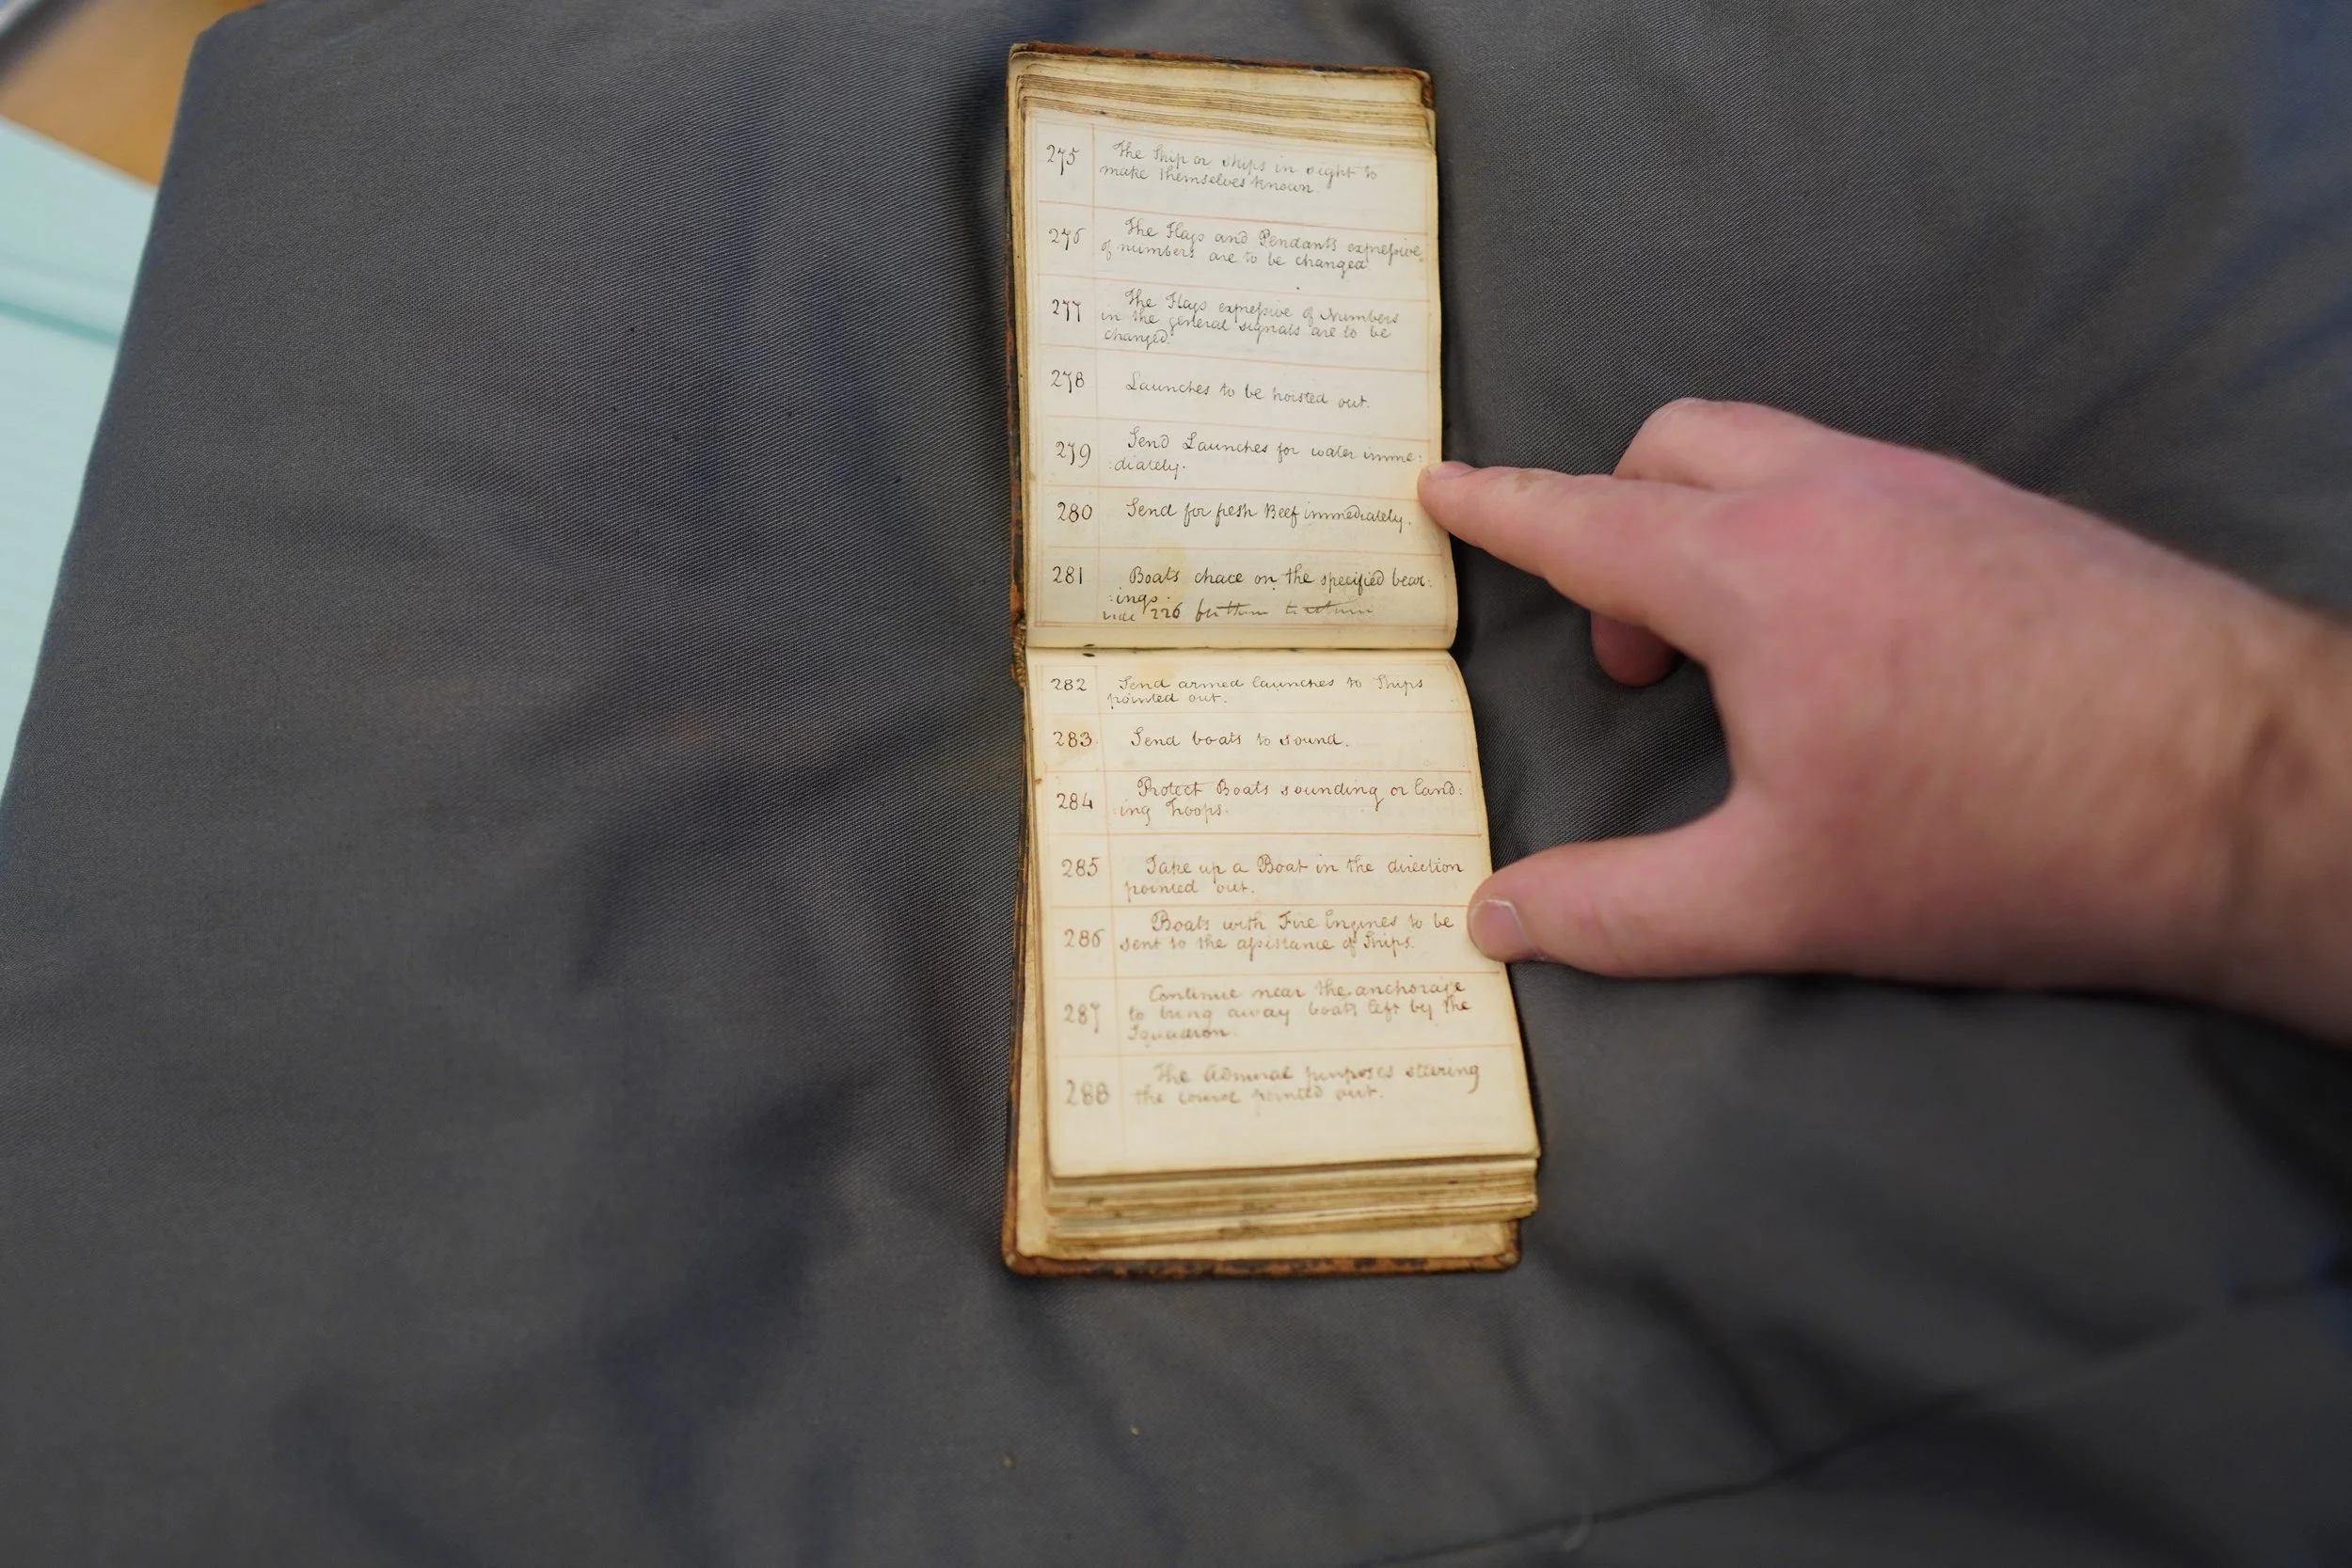 275 The Ship or ships in sight to
make themselves known.
276 The Flags and Pendants expreſsive
of numbers are to be changed
277 The Flags expreſsive of Numbers
in the general signals are to be
changed.
278 Launches to be hoisted out.
279 Send Launches for water imme:
:diately.
280 Send for fresh Beef immediately.
281 Boats chace on the specified bear:
:ings.
vide 226
282 Send armed launches to Ships
pointed out.
283 Send boats to sound.
284 Protect Boats sounding or land:
:ing troops.
285 Take up a Boat in the direction
pointed out.
286 Boats with Fire Engines to be
sent to the aſsistance of Ships.
287 Continue near the anchorage
to bring away boats left by the
Squadron.
288 The Admiral purposes steering
the course pointed out.